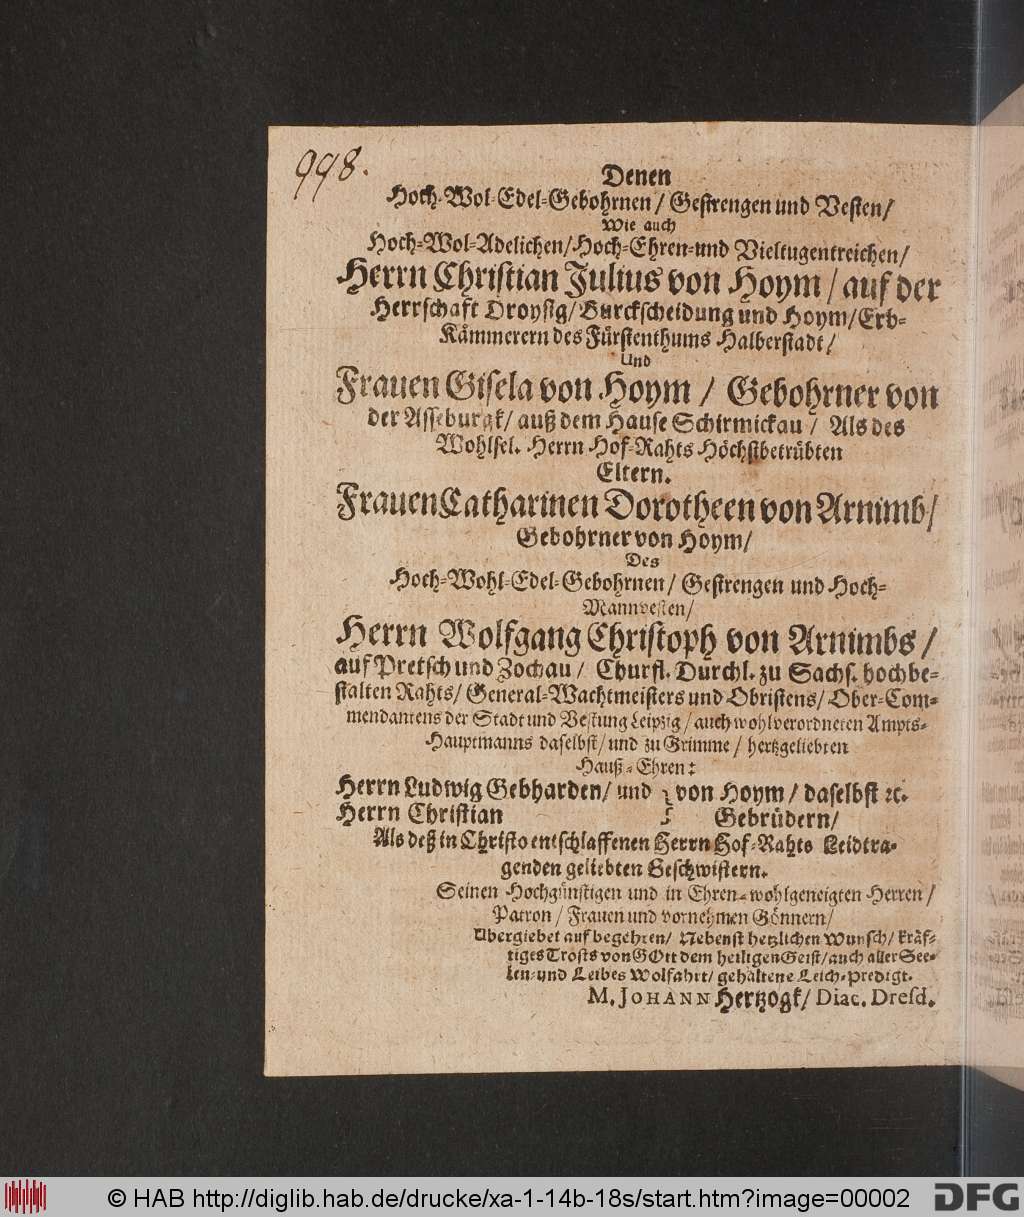 998.
Denen
Hoch-Wol-Edel-Gebohrnen / Gestrengen und Vesten /
Wie auch
Hoch-Wol-Adelichen / Hoch-Ehren-und Vieltugentreichen /
Herrn Christian Julius von Hoym / auf der
Herrschaft Droysig / Burckscheidung und Hoym / Erb-
Kämmerern des Fürstenthums Halberstadt /
Und
Frauen Gisela von Hoym / Gebohrner von
der Asseburgk / auß dem Hause Schirmickau / Als des
Wohlsel. Herrn Hof-Rahts Höchstbetrübten
Eltern.
Frauen Catharinen Dorotheen von Arnimb /
Gebohrner von Hoym /
Des
Hoch-Wohl-Edel-Gebohrnen / Gestrengen und Hoch-
Mannvesten /
Herrn Wolfgang Christoph von Arnimbs /
auf Pretsch und Zochau / Churfl. Durchl. zu Sachs. hochbe-
stalten Rahts / General-Wachtmeisters und Obristens / Ober-Com-
mendantens der Stadt und Vestung Leipzig / auch wohlverordneten Ampts-
Hauptmanns daselbst / und zu Grimme / hertzgeliebten
Hauß-Ehren:
Herrn Ludwig Gebharden / und } von Hoym / daselbst ꝛc.
Herrn Christian } Gebrüdern /
Als deß in Christo entschlaffenen Herrn Hof-Rahts Leidtra-
genden geliebten Geschwistern.
Seinen Hochgünstigen und in Ehren-wohlgeneigten Herren /
Patron / Frauen und vornehmen Gönnern /
Übergiebet auf begehren / Nebenst hetzlichen Wunsch / kräf-
tiges Trosts von GOtt dem heiligen Geist / auch aller See-
len-und Leibes Wolfahrt / gehaltene Leich-Predigt.
M. JOHANN Hertzogk / Diac. Dresd.
© HAB http://diglib.hab.de/drucke/xa-1-14b-18s/start.htm?image=00002
DFG